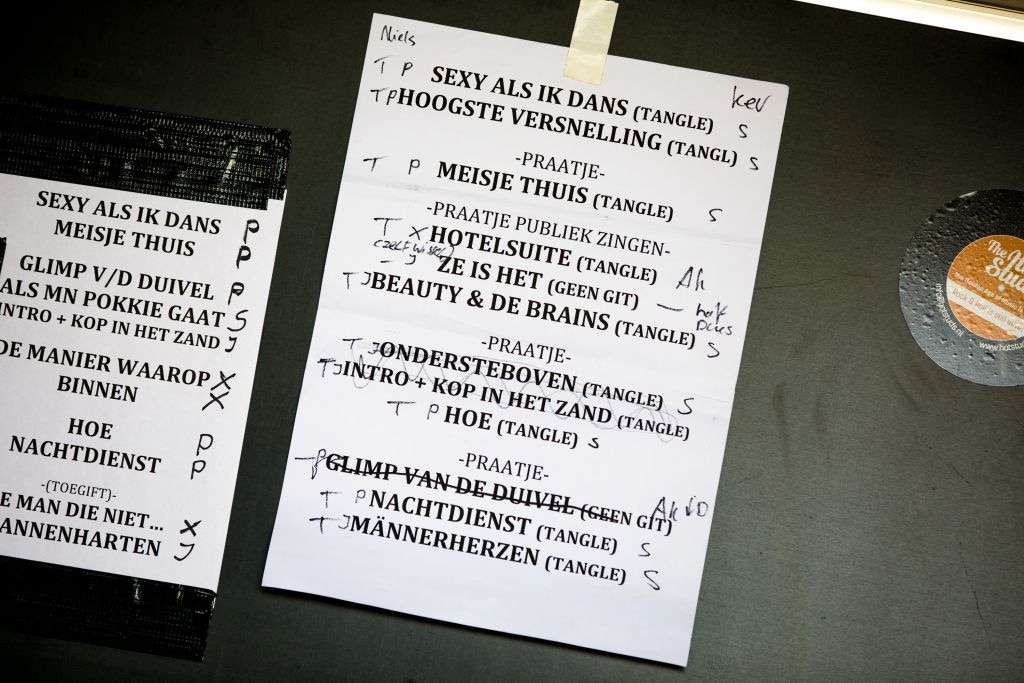 SEXY ALS IK DANS P
MEISJE THUIS P
GLIMP V/D DUIVEL P
ALS MN POKKIE GAAT S
INTRO + KOP IN HET ZAND J
DE MANIER WAAROP X
BINNEN X
HOE P
NACHTDIENST P
-(TOEGIFT)-
E MAN DIE NIET... X
ANNENHARTEN J
Niels
Kev
T P SEXY ALS IK DANS (TANGLE) S
TP HOOGSTE VERSNELLING (TANGL) S
-PRAATJE-
T P MEISJE THUIS (TANGLE) S
-PRAATJE PUBLIEK ZINGEN-
T X HOTELSUITE (TANGLE) Ak
- J ZE IS HET (GEEN GIT) —
TJ BEAUTY & DE BRAINS (TANGLE) S
-PRAATJE-
TJ ONDERSTEBOVEN (TANGLE) S
TJ INTRO + KOP IN HET ZAND (TANGLE)
T P HOE (TANGLE) S
-PRAATJE-
-P GLIMP VAN DE DUIVEL (GEEN GIT) Ak
T P NACHTDIENST (TANGLE) S
TJ MÄNNERHERZEN (TANGLE) S
The
the Golden Age of Music
Rock & Roll is still alive
www.hotstuds